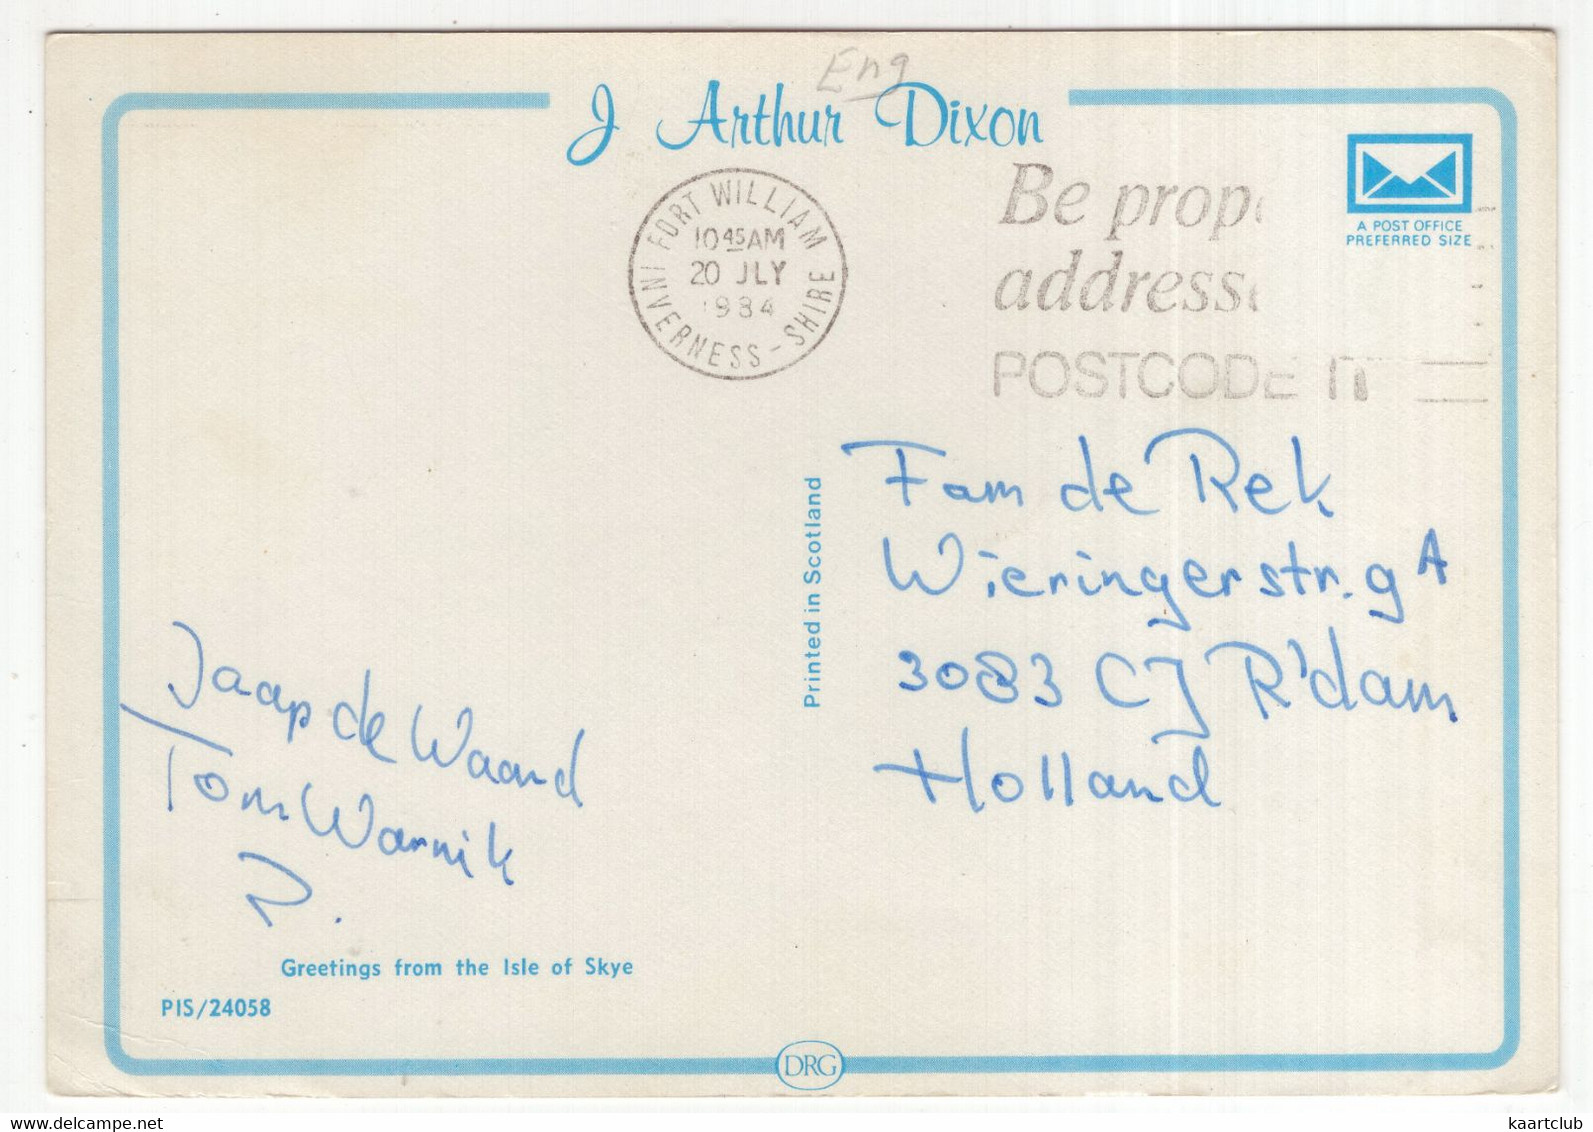 Eng
J Arthur Dixon
FORT WILLIAM
10 45 AM
20 JLY
1984
INVERNESS-SHIRE
Be prop
addresse
POSTCODE IT
A POST OFFICE
PREFERRED SIZE
Fam de Rek
Wieringerstr. 9 A
3083 CJ R'dam
Holland
Printed in Scotland
Jaap de Waard
Tom Warnik
Greetings from the Isle of Skye
PIS/24058
DRG
kaartclub